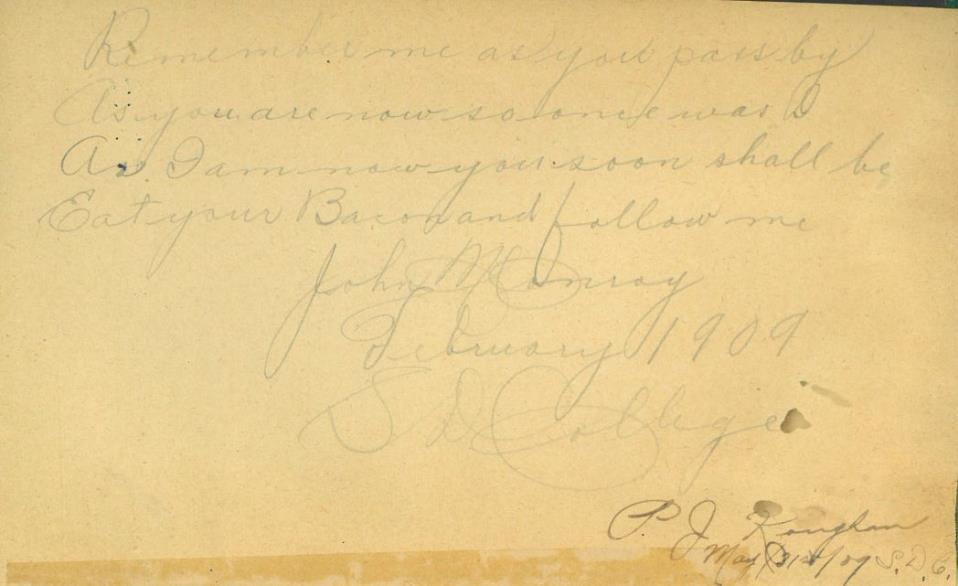 Remember me as you pass by
As you are now so once was I
As I am now you soon shall be
Eat your Bacon and follow me
John M Conroy
February 1909
S D College
P. J.
May 31st/09 S. D. C.